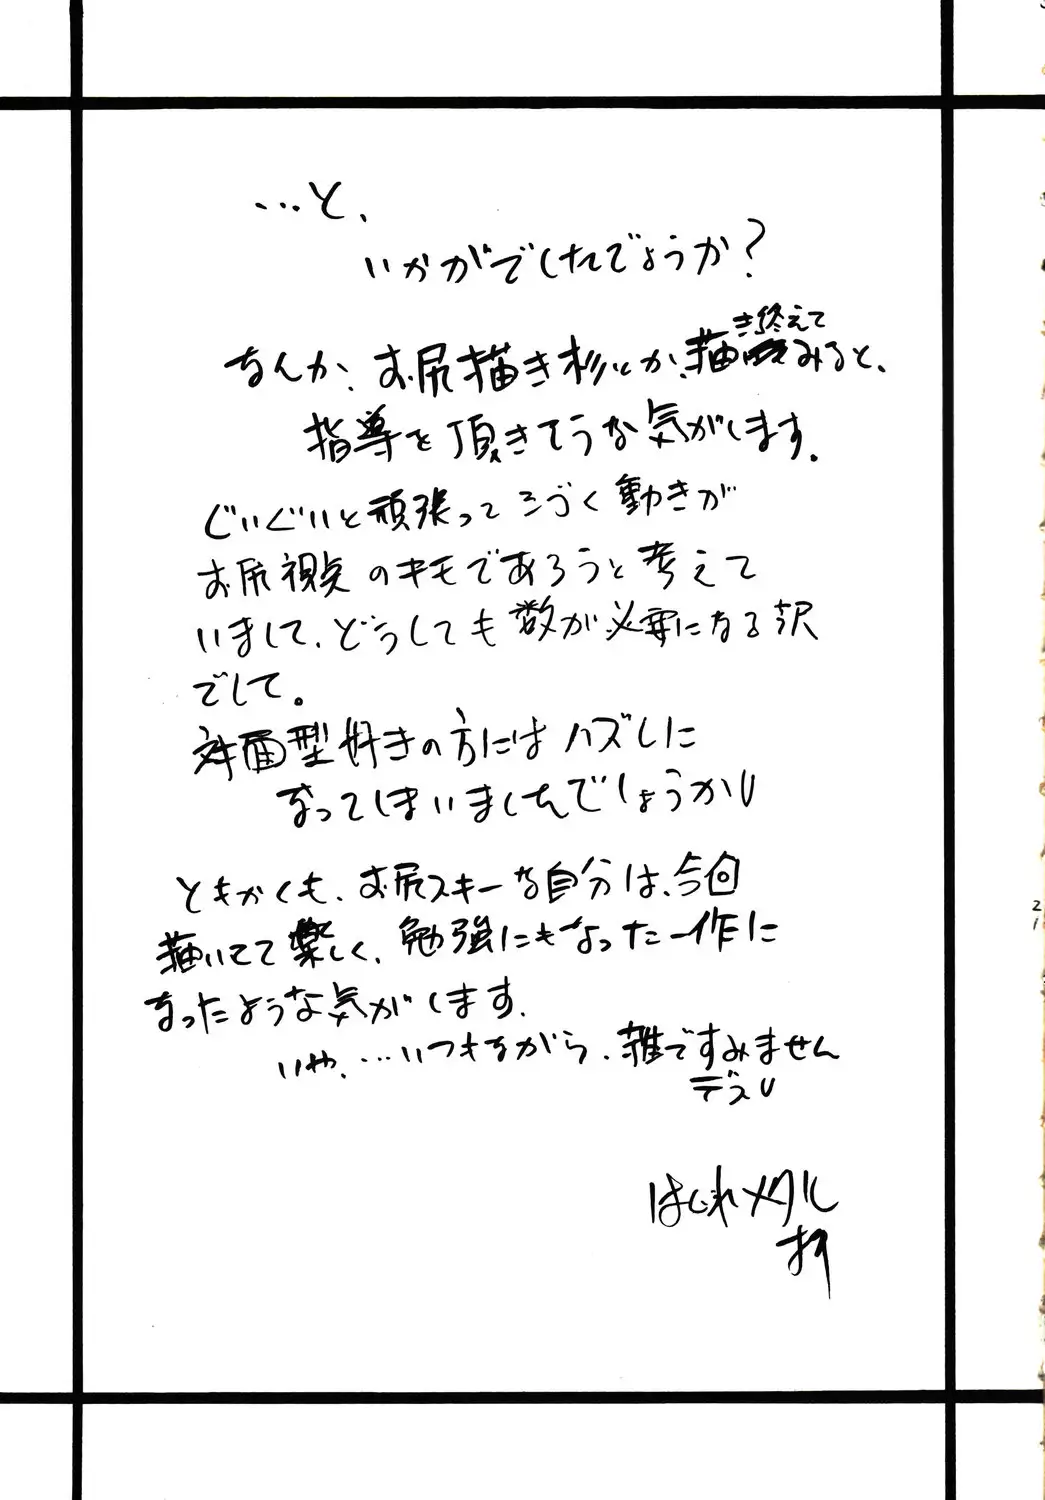 …と、
いかがでしたでしょうか?
なんか、お尻描き杉とか、描き終えてみると、
指導を頂きそうな気がします。
ぐいぐいと頑張って うごく動きが
お尻視点のキモであろうと考えて
いまして、どうしても数が必要になる訳
でして。
対面型好きの方にはハズしに
なってしまいましたでしょうか
ともかくも、お尻スキーな自分は、今回
描いてて楽しく、勉強にもなった一作に
なったような気がします.
いや、…いつもながら、雑ですみません
デス
はじめメタル
21